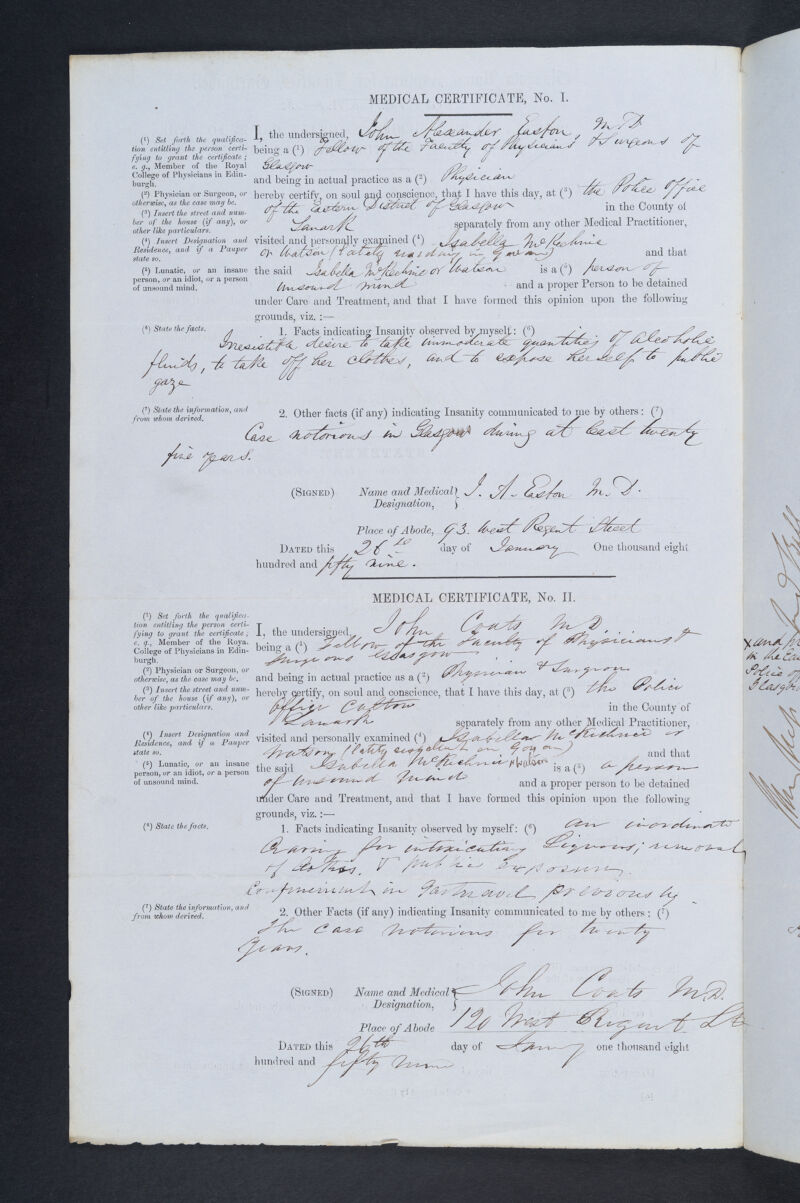 MEDICAL CERTIFICATE, No. I.
(¹) Set forth the qualification
tion entitling the person certi-
fying to grant the certificate;
e. g., Member of the Royal
College of Physicians in Edin-
burgh.
(²) Physician or Surgeon, or
otherwise, as the case may be.
(³) Insert the street and num-
ber of the house (if any), or
other like particulars.
(⁴) Insert Designation and
Residence, and if a Pauper
state so.
(⁵) Lunatic, or an insane
person, or an idiot, or a person
of unsound mind.
I, the undersigned, John Alexander Easton, M.D.
being a (¹) Fellow of the Faculty of Physicians & Surgeons of
Glasgow
and being in actual practice as a (²) Physician
hereby certify, on soul and conscience, that I have this day, at (³) the Police Office
of the Eastern District of Glasgow in the County of
Lanark separately from any other Medical Practitioner,
visited and personally examined (⁴) Isabella McKechnie
or Watson (lately residing in Govan) and that
the said Isabella McKechnie or Watson is a (⁵) person of
unsound mind and a proper Person to be detained
under Care and Treatment, and that I have formed this opinion upon the following
grounds, viz.:—
(⁶) State the facts.
1. Facts indicating Insanity observed by myself: (⁶)
Irresistible desire to take immoderate quantities of alcoholic
fluids, to take off her clothes, and to expose herself to public
gaze
(⁷) State the information, and
from whom derived.
2. Other facts (if any) indicating Insanity communicated to me by others: (⁷)
Case notorious in Glasgow during at least twenty
five years.
(SIGNED) Name and Medical J. A. Easton M.D.
Designation,
Place of Abode, 93. West Regent Street
DATED this 26th day of January One thousand eight
hundred and fifty nine.
MEDICAL CERTIFICATE, No. II.
(¹) Set forth the qualifica-
tion entitling the person certi-
fying to grant the certificate;
e. g., Member of the Roya.
College of Physicians in Edin-
burgh.
(²) Physician or Surgeon, or
otherwise, as the case may be.
(³) Insert the street and num-
ber of the house (if any), or
other like particulars.
(⁴) Insert Designation and
Residence, and if a Pauper
state so.
(⁵) Lunatic, or an insane
person, or an idiot, or a person
of unsound mind.
I, the undersigned, John Coats M D
being a (¹) Fellow of the Faculty of Physicians &
Surgeons Glasgow
and being in actual practice as a (²) Physician & Surgeon
hereby certify, on soul and conscience, that I have this day, at (³) the Police
Office Calton in the County of
Lanark separately from any other Medical Practitioner,
visited and personally examined (⁴) Isabella McKechnie or
Watson (lately in Govan) and that
the said Isabella McKechnie or Watson is a (⁵) a person
of unsound mind and a proper person to be detained
under Care and Treatment, and that I have formed this opinion upon the following
grounds, viz.:—
(⁶) State the facts.
1. Facts indicating Insanity observed by myself: (⁶) an inordinate
craving for intoxicating Liquors; removal
of clothes, & public Exposure.
Confinement in Gartnavel previously.
(⁷) State the information, and
from whom derived.
2. Other Facts (if any) indicating Insanity communicated to me by others: (⁷)
The case notorious for twenty
years.
(SIGNED) Name and Medical John Coats M.D.
Designation,
Place of Abode 120 West Regent St
DATED this 26th day of Jany one thousand eight
hundred and fifty nine
x and
in the Ea
Police of
Glasgo